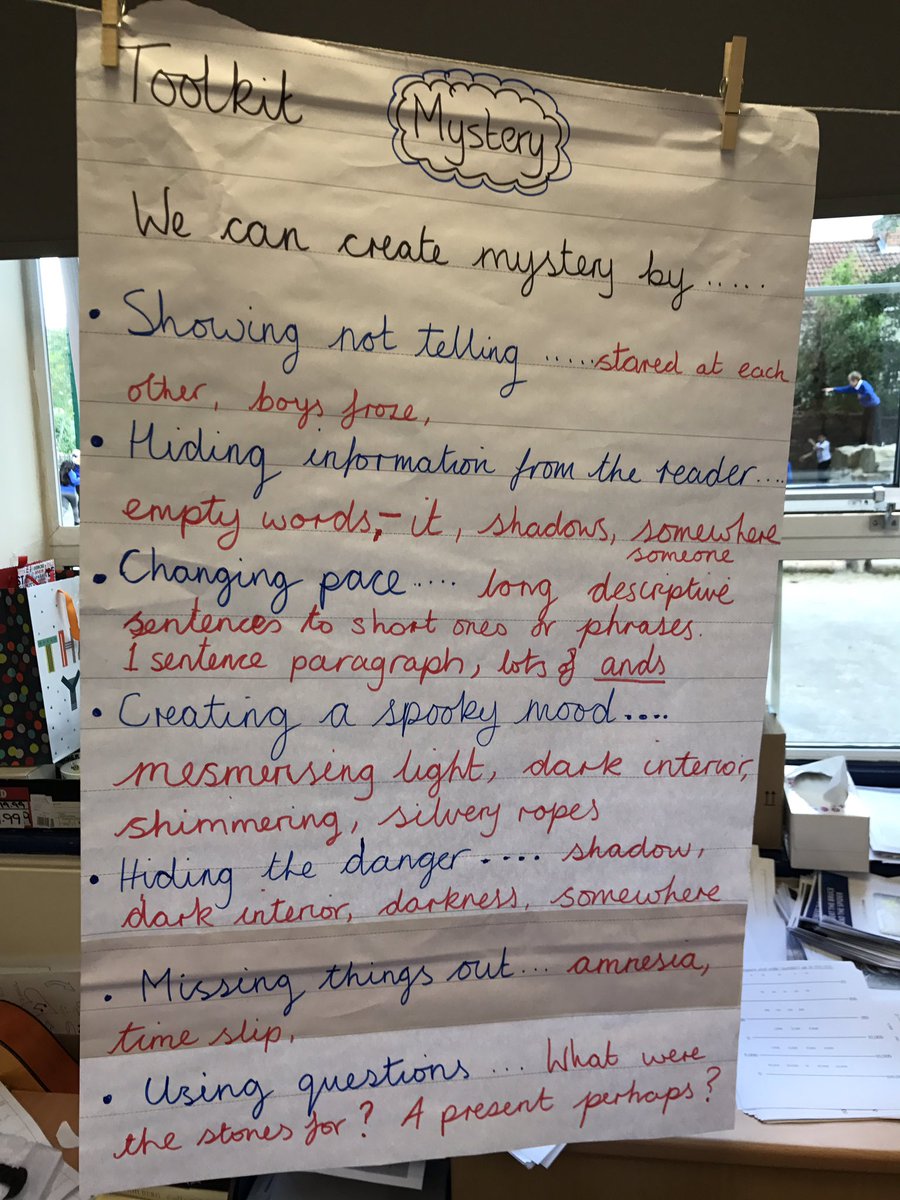 Toolkit Mystery
We can create mystery by .....
• Showing not telling ..... stared at each
other, boys froze,
• Hiding information from the reader....
empty words,- it, shadows, somewhere
someone
• Changing pace .... long descriptive
sentences to short ones or phrases.
1 sentence paragraph, lots of ands
• Creating a spooky mood....
mesmerising light, dark interior,
shimmering, silvery ropes
• Hiding the danger .... shadow,
dark interior, darkness, somewhere
• Missing things out... amnesia,
time slip,
• Using questions ... What were
the stones for? A present perhaps?